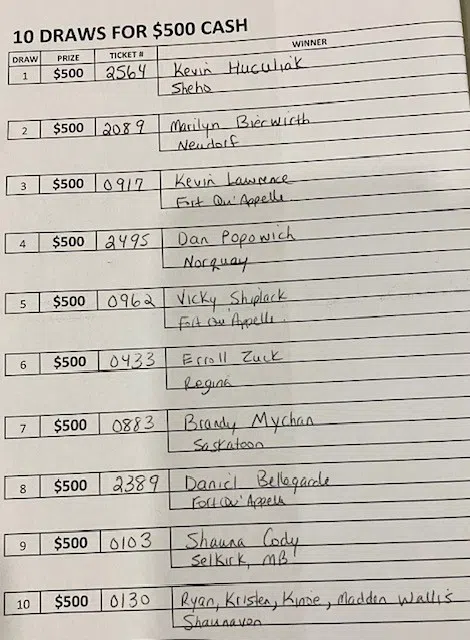 10 DRAWS FOR $500 CASH
DRAW PRIZE TICKET # WINNER
1 $500 2564 Kevin Huculiak
Sheho
2 $500 2089 Marilyn Bierwirth
Neudorf
3 $500 0917 Kevin Lawrence
Fort Qu'Appelle
4 $500 2495 Dan Popowich
Norquay
5 $500 0962 Vicky Shiplack
Fort Qu'Appelle
6 $500 0433 Erroll Zuck
Regina
7 $500 0883 Brandy Mychan
Saskatoon
8 $500 2389 Daniel Bellegarde
Fort Qu'Appelle
9 $500 0103 Shauna Cody
Selkirk, MB
10 $500 0130 Ryan, Kristen, , Madden Wallis
Shaunavon